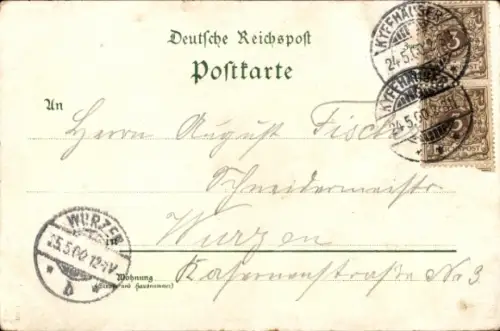 Deutsche Reichspost
Postkarte
KYFFHÄUSER
24.5.00
3
REICHSPOST
KYFFHÄUSER
24.5.00
3
REICHSPOST
An
Herrn August
Schneidermeister
in
Wurzen
WURZEN
25.5.00 12-1V
* b *
Wohnung
(Straße und Hausnummer)
Kasernenstraße Nr 3